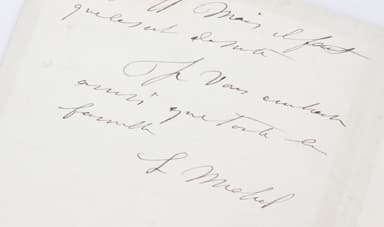 Mais il faut
que
Je vous embrasse
ainsi que toute la
famille
L Michel